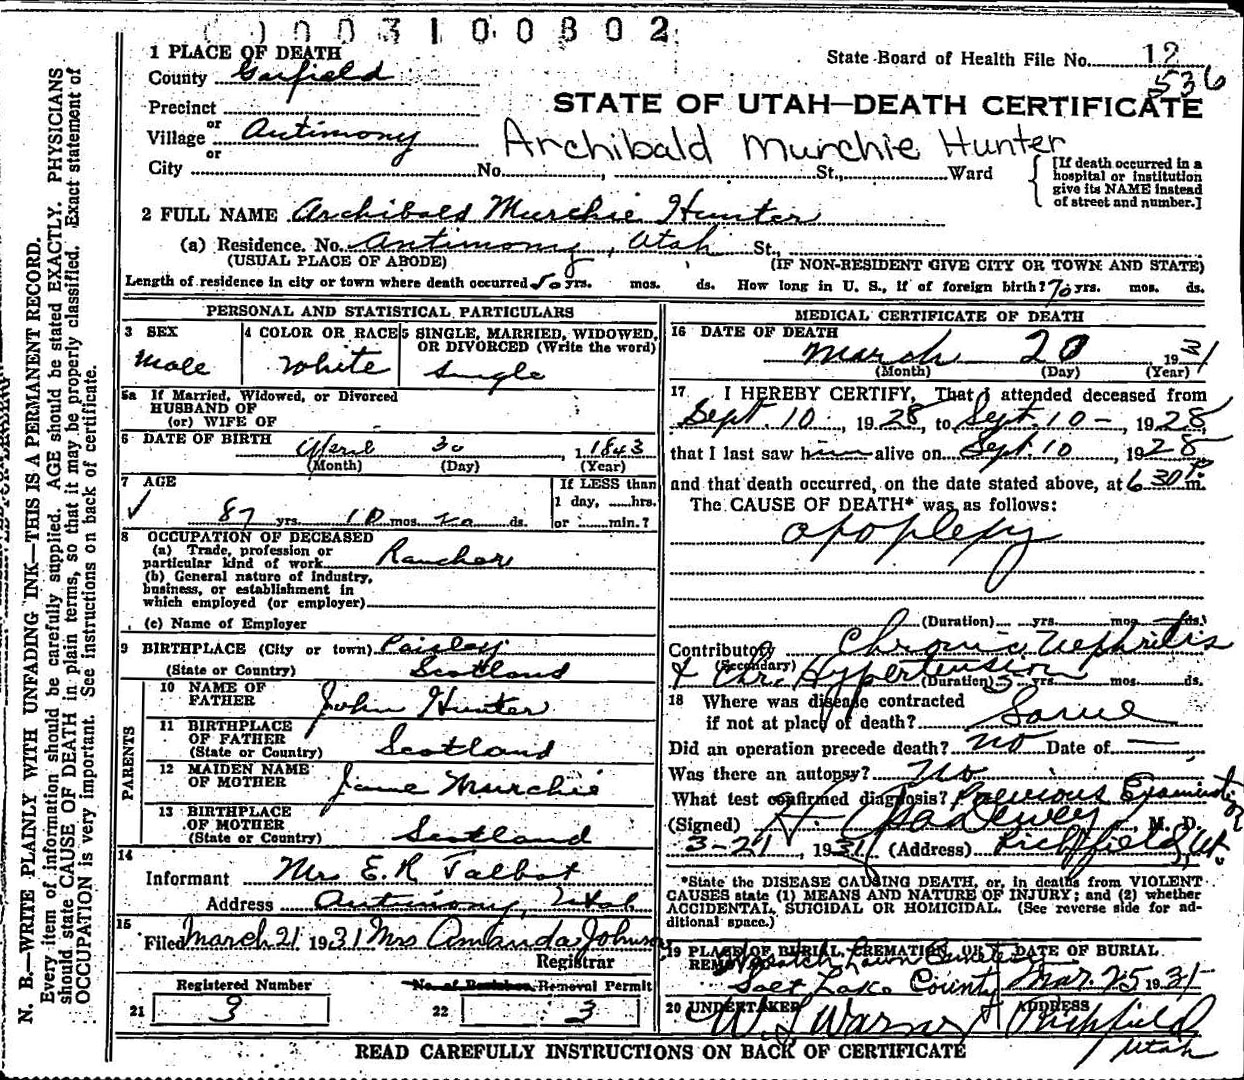 0003100802
1 PLACE OF DEATH
State Board of Health File No. 12
536
County Garfield
STATE OF UTAH—DEATH CERTIFICATE
Precinct
or
Village Antimony
Archibald Murchie Hunter
or
City No. , St., Ward
[If death occurred in a hospital or institution give its NAME instead of street and number.]
2 FULL NAME Archibald Murchie Hunter
(a) Residence. No. Antimony, Utah St.,
(USUAL PLACE OF ABODE) (IF NON-RESIDENT GIVE CITY OR TOWN AND STATE)
Length of residence in city or town where death occurred 50 yrs. mos. ds. How long in U. S., if of foreign birth? 70 yrs. mos. ds.
PERSONAL AND STATISTICAL PARTICULARS
3 SEX
Male
4 COLOR OR RACE
White
5 SINGLE, MARRIED, WIDOWED,
OR DIVORCED (Write the word)
Single
5a If Married, Widowed, or Divorced
HUSBAND OF
(or) WIFE OF
6 DATE OF BIRTH April 30 , 1843
(Month) (Day) (Year)
7 AGE
87 yrs. 10 mos. 20 ds.
If LESS than
1 day, ......hrs.
or ......min.?
8 OCCUPATION OF DECEASED
(a) Trade, profession or
particular kind of work Rancher
(b) General nature of industry,
business, or establishment in
which employed (or employer)
(c) Name of Employer
9 BIRTHPLACE (City or town) Paisley
(State or Country) Scotland
PARENTS
10 NAME OF
FATHER John Hunter
11 BIRTHPLACE
OF FATHER
(State or Country) Scotland
12 MAIDEN NAME
OF MOTHER Jane Murchie
13 BIRTHPLACE
OF MOTHER
(State or Country) Scotland
14
Informant Mrs E. R Talbot
Address Antimony, Utah
15
Filed March 21 1931 Mrs Amanda Johnson
Registrar
Registered Number
21 3
No. of Burial or Removal Permit
22 3
MEDICAL CERTIFICATE OF DEATH
16 DATE OF DEATH
March 20 1931
(Month) (Day) (Year)
17 I HEREBY CERTIFY, That I attended deceased from
Sept. 10, 1928, to Sept. 10 -, 1928,
that I last saw him alive on Sept. 10, 1928
and that death occurred, on the date stated above, at 6 30 P. m.
The CAUSE OF DEATH* was as follows:
apoplexy
(Duration) yrs. mos. ds.
Contributory Chronic Nephritis
(Secondary)
& Chr. Hypertension
(Duration) 5 yrs. mos. ds.
18 Where was disease contracted
if not at place of death? Same
Did an operation precede death? No Date of —
Was there an autopsy? No
What test confirmed diagnosis? Previous Examination
(Signed) Dewey, M. D.
3-21, 1931 (Address) Richfield, Ut.
*State the DISEASE CAUSING DEATH, or, in deaths from VIOLENT
CAUSES state (1) MEANS AND NATURE OF INJURY; and (2) whether
ACCIDENTAL, SUICIDAL OR HOMICIDAL. (See reverse side for ad-
ditional space.)
19 PLACE OF BURIAL, CREMATION, OR
REMOVAL Wasatch Lawn Cemetery
Salt Lake County
DATE OF BURIAL
Mar. 25 1931
20 UNDERTAKER
W. S Warner
ADDRESS
Richfield
Utah
READ CAREFULLY INSTRUCTIONS ON BACK OF CERTIFICATE
N. B.—WRITE PLAINLY WITH UNFADING INK—THIS IS A PERMANENT RECORD.
Every item of information should be carefully supplied. AGE should be stated EXACTLY. PHYSICIANS
should state CAUSE OF DEATH in plain terms, so that it may be properly classified. Exact statement of
OCCUPATION is very important. See instructions on back of certificate.